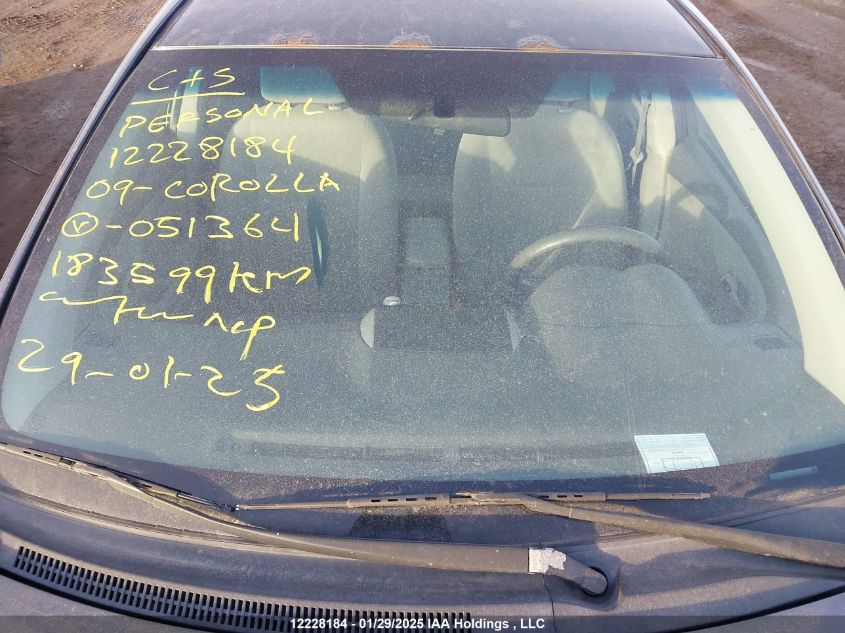 C+S
PERSONAL
12228184
09-COROLLA
Ⓥ-051364
183599KM
29-01-25
12228184 - 01/29/2025 IAA Holdings , LLC